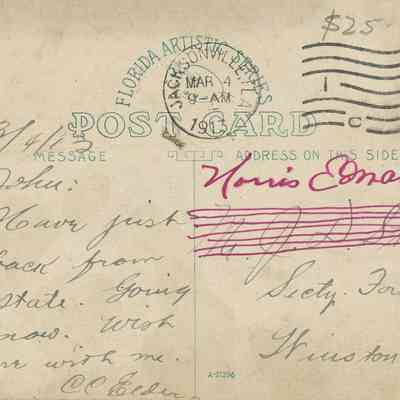 $25.
FLORIDA ARTISTIC SERIES
JACKSONVILLE, FLA.
MAR 4
9-AM
1913
POST CARD
3/4/13
MESSAGE
ADDRESS ON THIS SIDE
John:
Have just
back from
state. Going
now. Wish
me with me.
C C Elder
Norris Edwa
Secty. For
Winston
A-21296